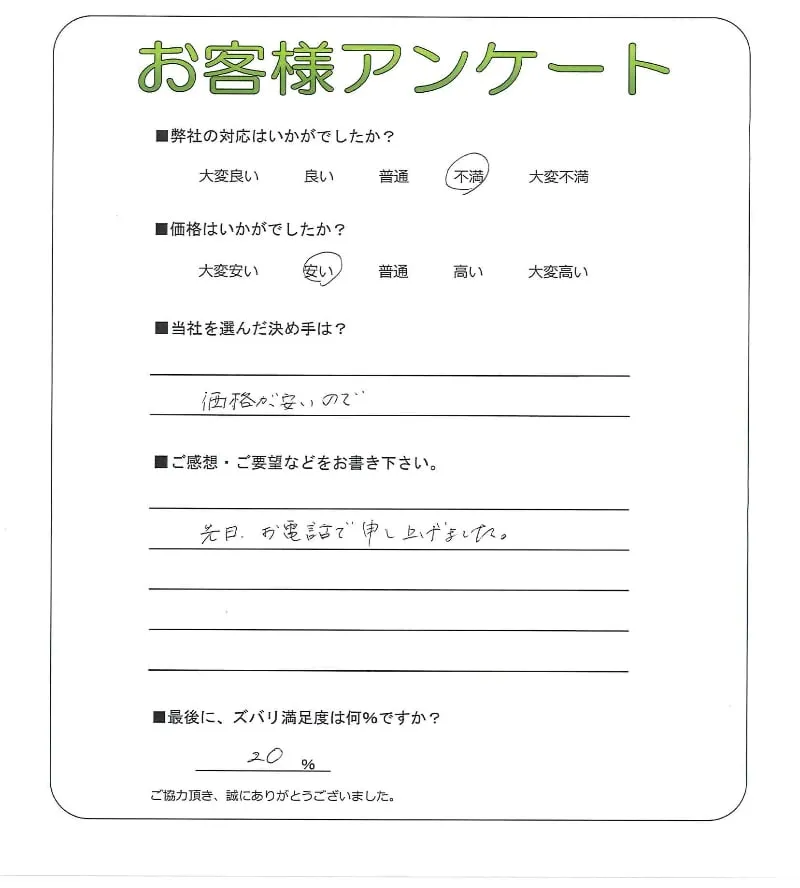 お客様アンケート
■弊社の対応はいかがでしたか？
大変良い 良い 普通 不満 大変不満
■価格はいかがでしたか？
大変安い 安い 普通 高い 大変高い
■当社を選んだ決め手は？
価格が安いので
■ご感想・ご要望などをお書き下さい。
先日、お電話で申し上げました。
■最後に、ズバリ満足度は何%ですか？
20 %
ご協力頂き、誠にありがとうございました。